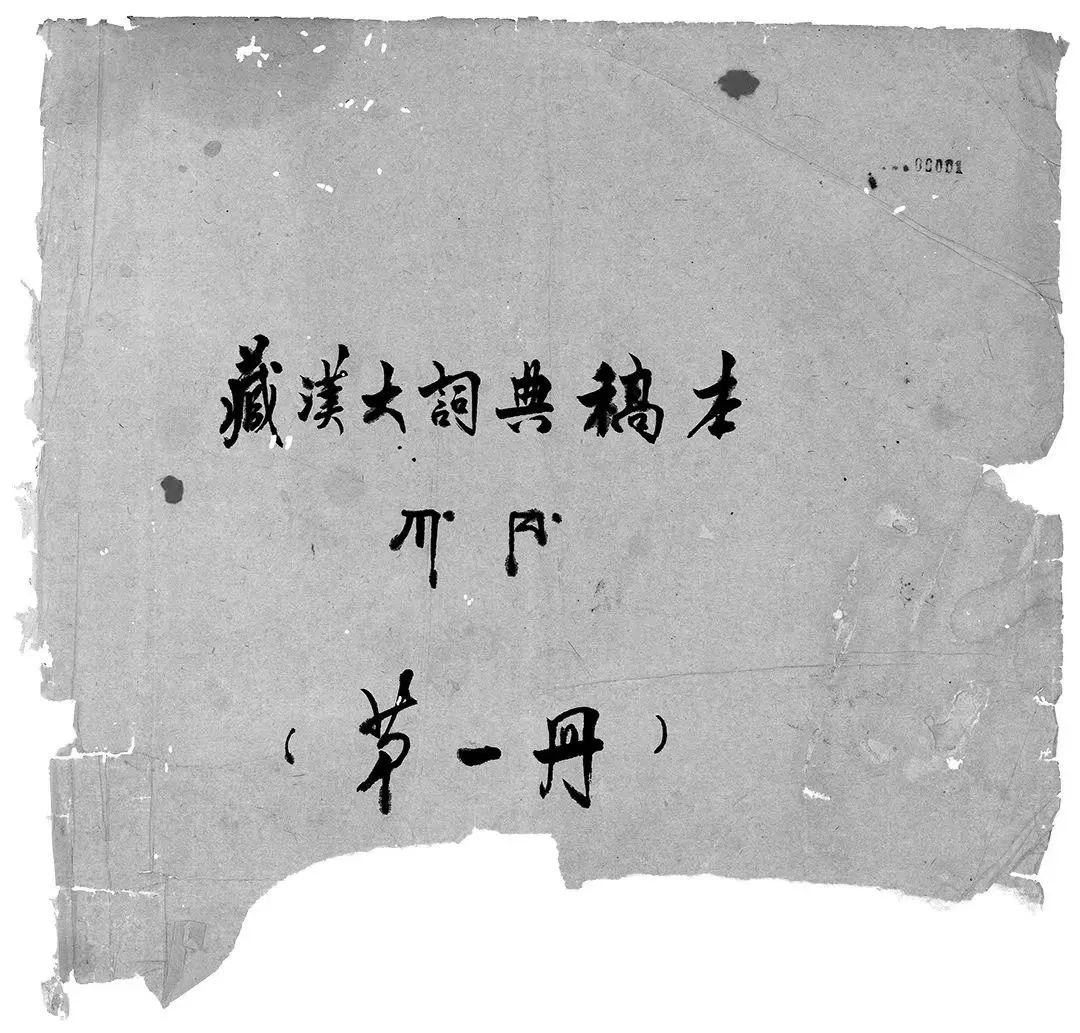 00001
藏漢大詞典稿本
ཀ་
(第一册)